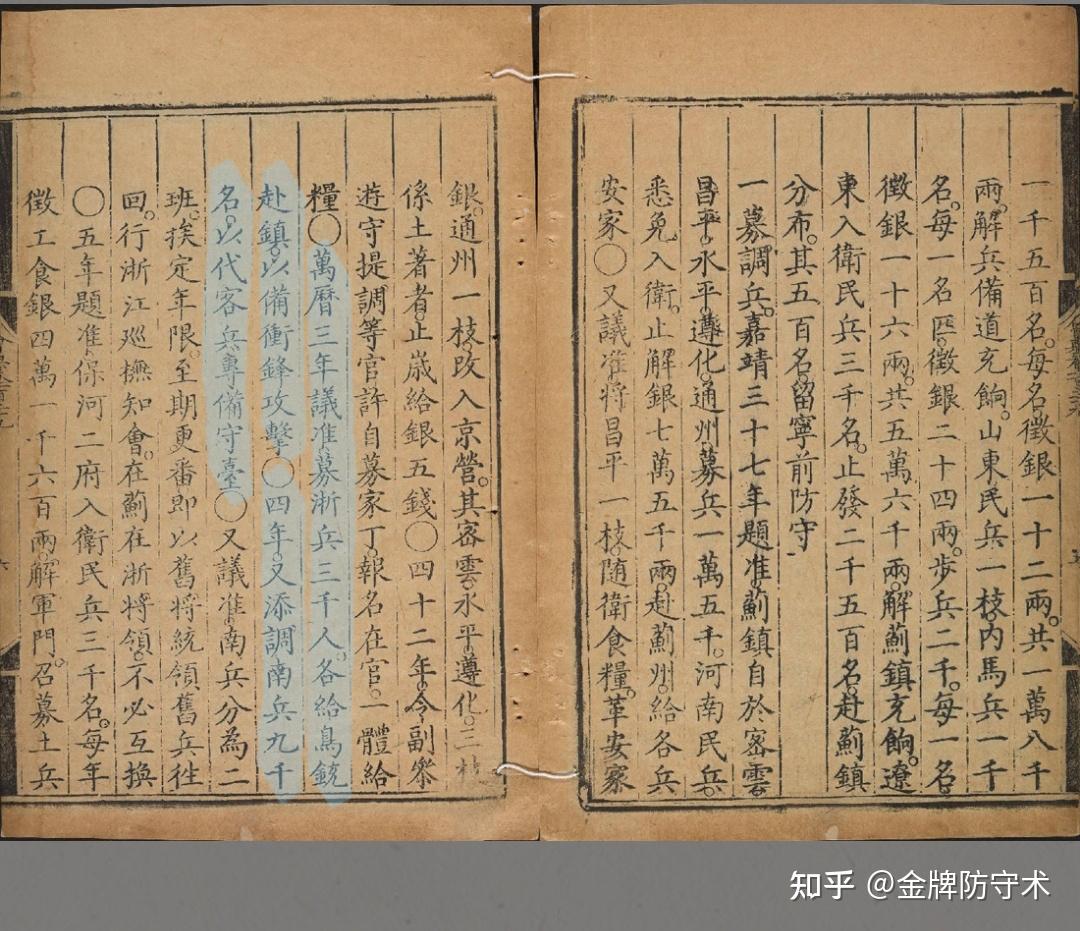 一千五百名。每名徵銀一十二兩。共一萬八千
兩。解兵備道充餉。山東民兵一枝。内馬兵一千
名。每一名匹。徵銀二十四兩。步兵二千。每一名
徵銀一十六兩。共五萬六千兩。解薊鎮充餉。遼
東入衛民兵三千名。止發二千五百名。赴薊鎮
分布。其五百名。留寧前防守
一募調兵。嘉靖三十七年題准。薊鎮自於密雲。
昌平。永平。遵化。通州。募兵一萬五千。河南民兵。
悉免入衛。止解銀七萬五千兩。赴薊州。給各兵
安家○又議准。將昌平一枝。隨衛食糧。革安家
銀。通州一枝。改入京營。其密雲。永平。遵化。三枝
係土著者。止歲給銀五錢○四十二年。令副參
遊守提調等官。許自募家丁。報名在官。一體給
糧○萬曆三年議准。募浙兵三千人。各給鳥銃
赴鎮。以備衝鋒攻擊○四年。又添調南兵九千
名。以代客兵。專備守臺○又議准。南兵分為二
班。挨定年限。至期更番。即以舊將統領舊兵往
回。行浙江巡撫知會。在薊在浙將領。不必互換
○五年題准。保河二府入衛民兵三千名。每年
徵工食銀四萬一千六百兩。解軍門。召募土兵
知乎 @金牌防守术